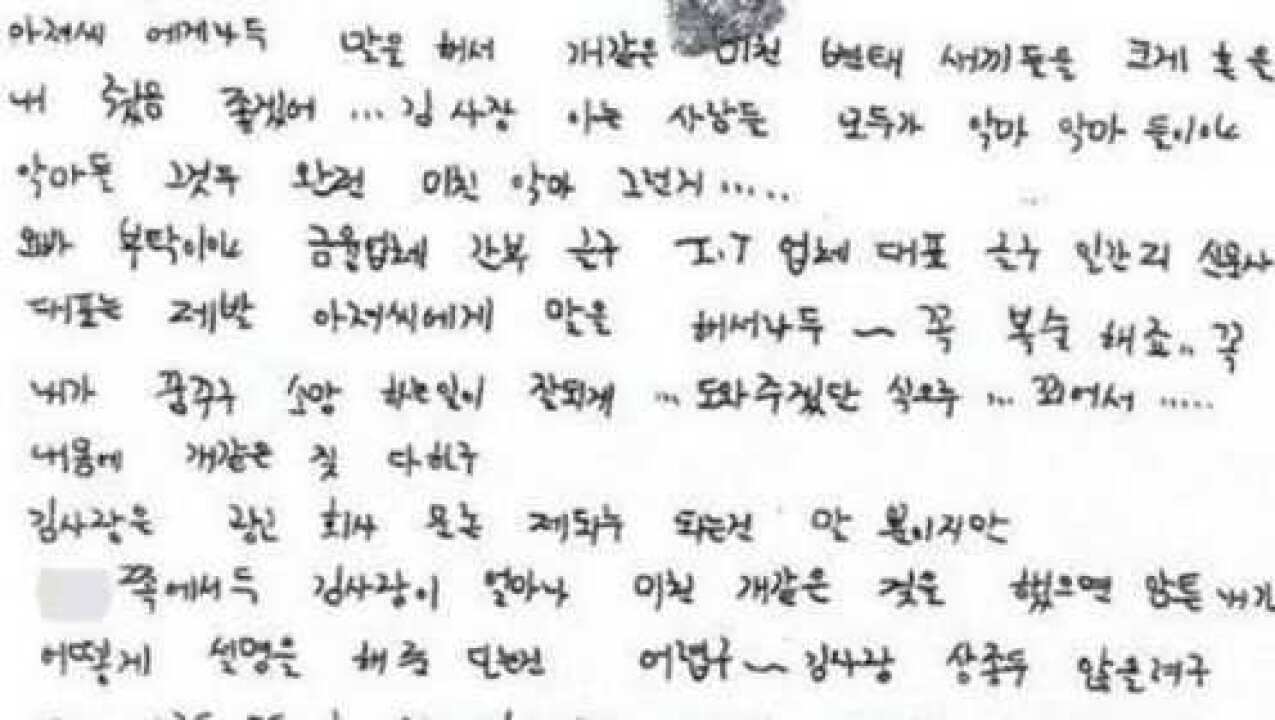 아저씨 에게나두 말을 해서 개같은 미친 변태 새끼들을 크게 혼을
내 줬음 좋겠어 ... 김 사장 아는 사람들 모두가 악마 악마 들이야
악마돈 그것두 완전 미친 악마 그런지 .....
오빠 부탁이야 금융업체 간부 든구 I.T 업체 대표 든구 일간지 신문사
대표는 제발 아저씨에게 말을 해서나두 ~ 꼭 복수 해죠.. 꼭
내가 꿈꾸구 소망 하는일이 잘되게 ... 도와주겠단 식으루 ... 꾀어서 .....
내몸에 개같은 짓 다하구
김사장은 회사 되는건 말 뿐이지만
쪽에서두 김사장이 얼마나 미친 개같은 짓을 했으면 암튼 내가
어떻게 설명을 해줌 어렵구 ~ 김사장 상종두 않을려구